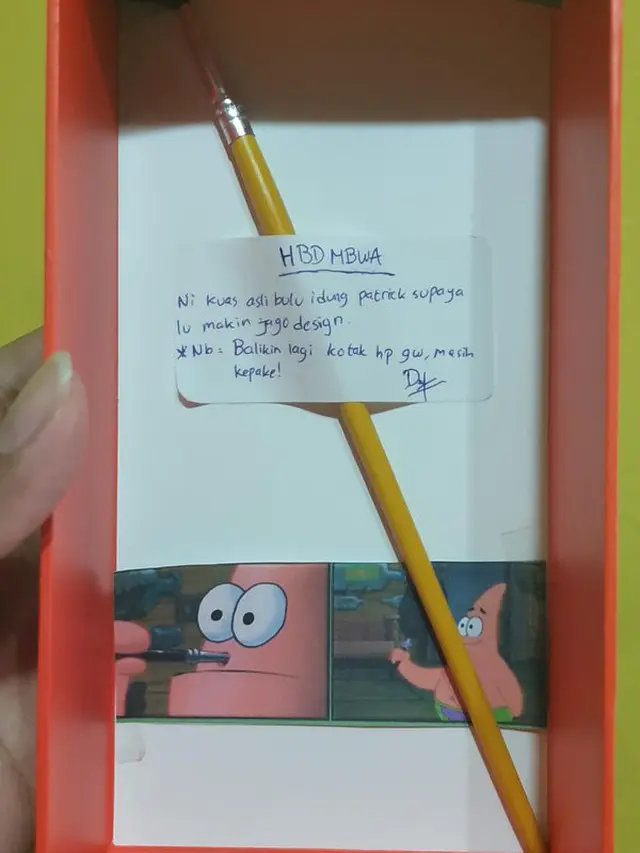 HBD MBWA
Ni kuas asli bulu idung patrick supaya
lu makin jago design.
*Nb: Balikin lagi kotak hp gw, masih
kepake!